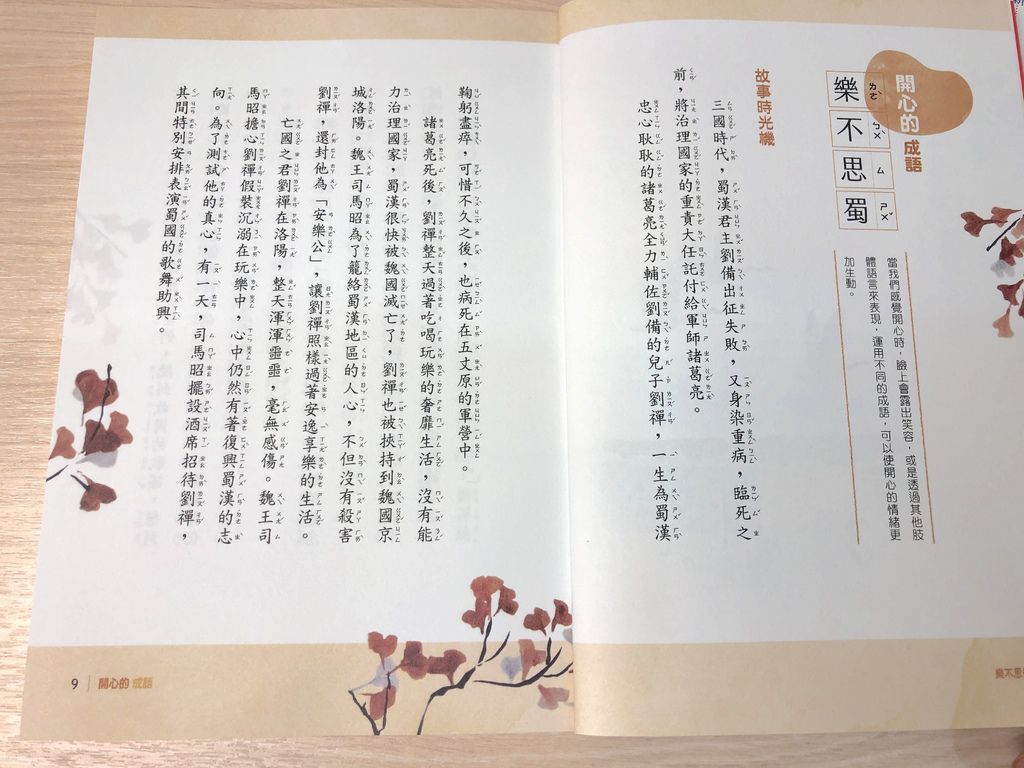 開心的成語
樂不思蜀
ㄌㄜˋ ㄅㄨˋ ㄙ ㄕㄨˇ
當我們感覺開心時，臉上會露出笑容，或是透過其他肢
體語言來表現，運用不同的成語，可以使開心的情緒更
加生動。
故事時光機
三國時代，蜀漢君主劉備出征失敗，又身染重病，臨死之
前，將治理國家的重責大任託付給軍師諸葛亮。
忠心耿耿的諸葛亮全力輔佐劉備的兒子劉禪，一生為蜀漢
樂不思
鞠躬盡瘁，可惜不久之後，也病死在五丈原的軍營中。
諸葛亮死後，劉禪整天過著吃喝玩樂的奢靡生活，沒有能
力治理國家，蜀漢很快被魏國滅亡了，劉禪也被挾持到魏國京
城洛陽。魏王司馬昭為了籠絡蜀漢地區的人心，不但沒有殺害
劉禪，還封他為「安樂公」，讓劉禪照樣過著安逸享樂的生活。
亡國之君劉禪在洛陽，整天渾渾噩噩，毫無感傷。魏王司
馬昭擔心劉禪假裝沉溺在玩樂中，心中仍然有著復興蜀漢的志
向。為了測試他的真心，有一天，司馬昭擺設酒席招待劉禪，
其間特別安排表演蜀國的歌舞助興。
9 開心的 成語